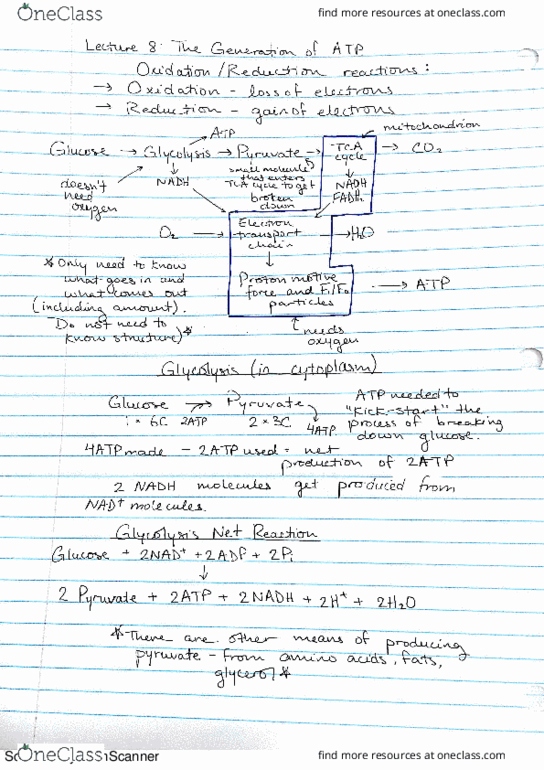 OneClass
find more resources at oneclass.com
Lecture 8: The Generation of ATP
Oxidation/Reduction reactions:
→ Oxidation - loss of electrons
→ Reduction - gain of electrons
mitochondrion
ATP
Glucose → Glycolysis → Pyruvate → TCA cycle → CO2
doesn't need oxygen
NADH
small molecule that enters TCA cycle to get broken down
NADH
FADH2
O2 → Electron transport chain → H2O
* Only need to know what goes in and what comes out (including amount).
Proton motive force and F1/F0 particles → ATP
Do not need to know structure) *
needs oxygen
Glycolysis (in cytoplasm)
Glucose →→ Pyruvate
1 × 6C 2ATP 2 × 3C 4ATP
ATP needed to "kick-start" the process of breaking down glucose.
4ATP made - 2ATP used = net
production of 2ATP
2 NADH molecules get produced from
NAD+ molecules.
Glycolysis Net Reaction
Glucose + 2NAD+ + 2ADP + 2Pi
↓
2 Pyruvate + 2ATP + 2NADH + 2H+ + 2H2O
* There are other means of producing
pyruvate - from amino acids, fats,
glycerol *
OneClass
Scanner
find more resources at oneclass.com